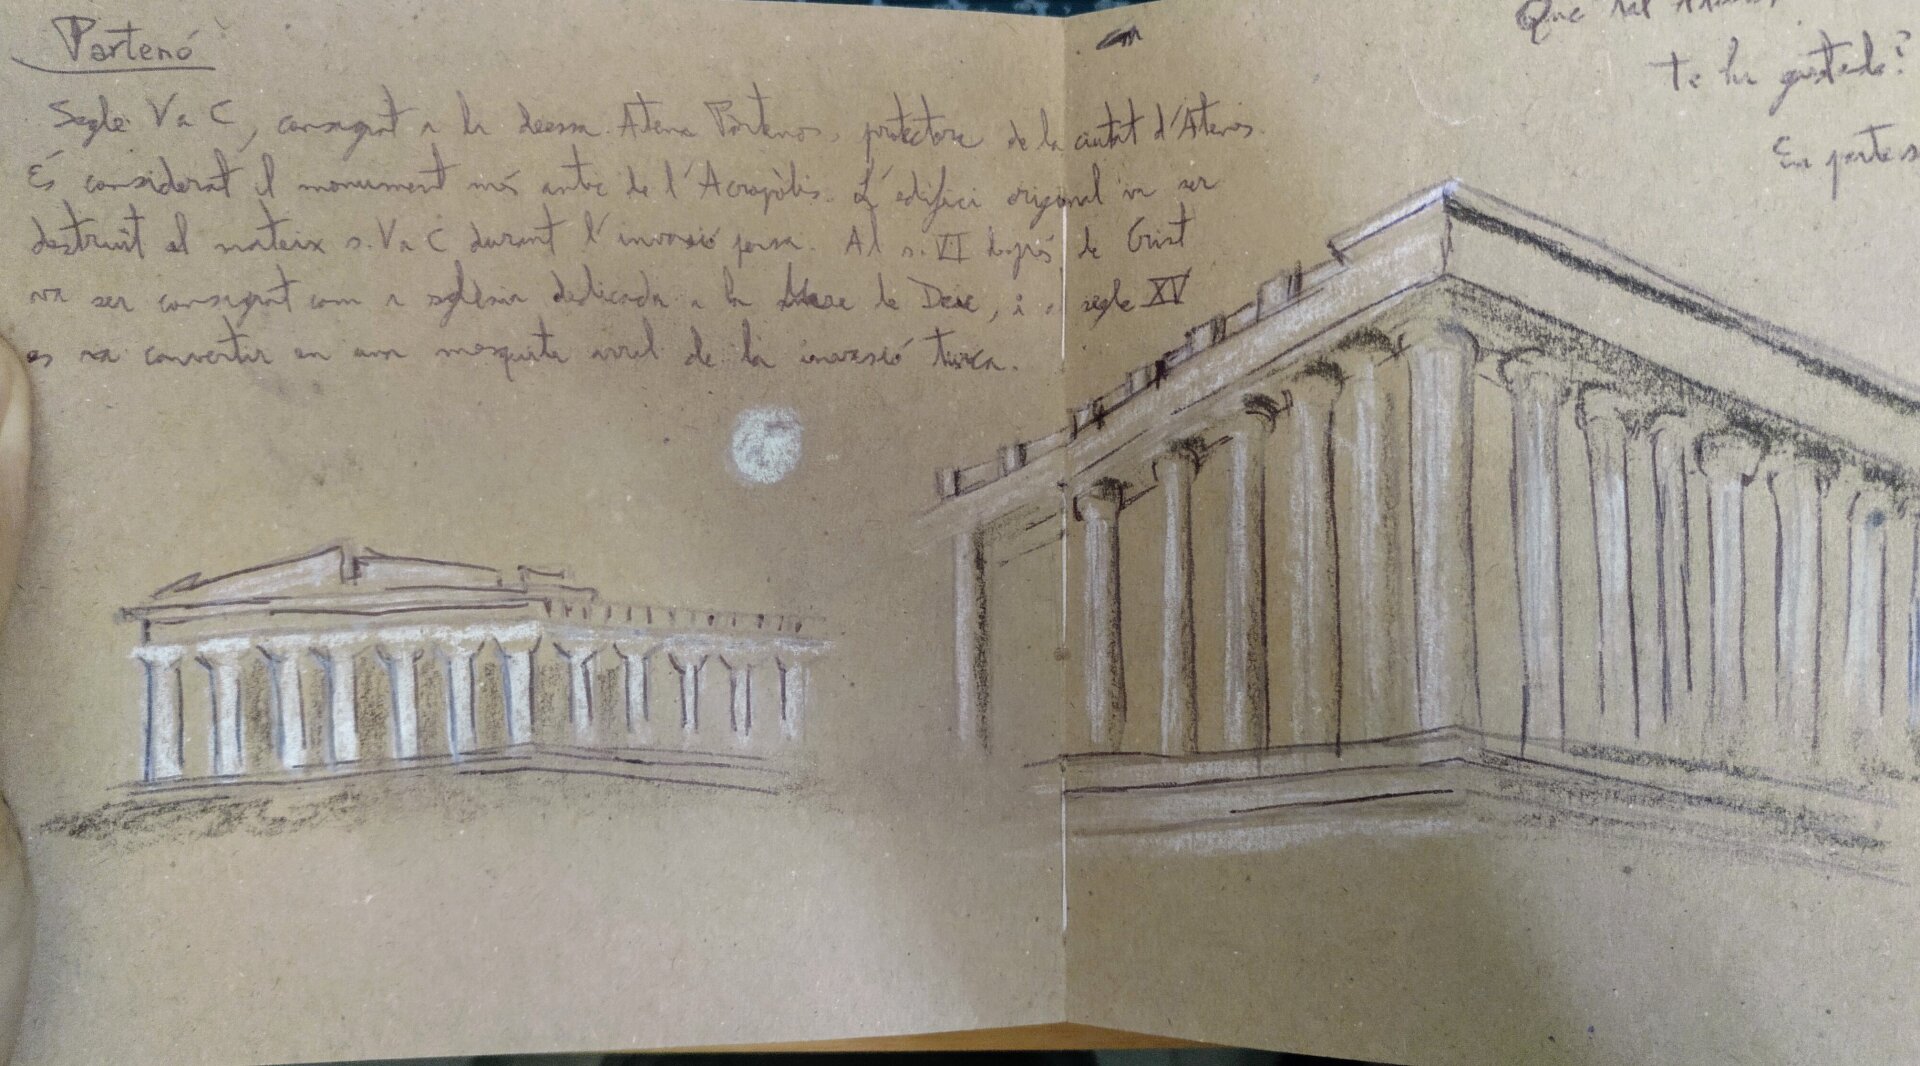 Partenó
Segle V a C, consagrat a la deessa Atena Pàrtenos, protectora de la ciutat d'Atenes.
És considerat el monument més antic de l'Acròpolis. L'edifici original va ser
destruït el mateix s. V a C durant l'invasió persa. Al s. VI després de Crist
va ser consagrat com a església dedicada a la Mare de Deu, i a segle XV
es va convertir en una mesquita arrel de la invasió turca.
Que tal
te ha gustado?
En